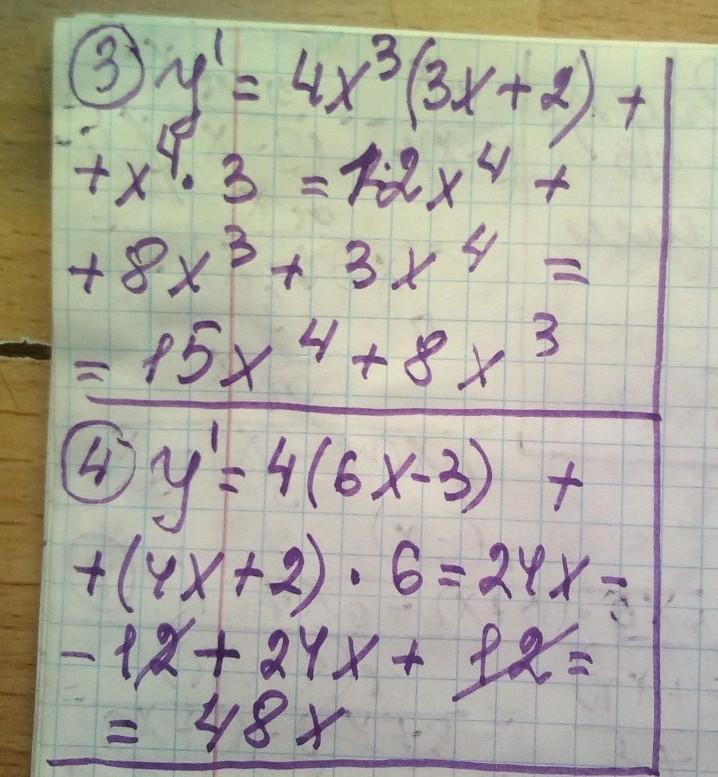 ③ y' = 4x³(3x+2) +
+x⁴·3 = 12x⁴ +
+8x³ + 3x⁴ =
= 15x⁴ + 8x³
④ y' = 4(6x-3) +
+(4x+2)·6 = 24x -
-12 + 24x + 12 =
= 48x